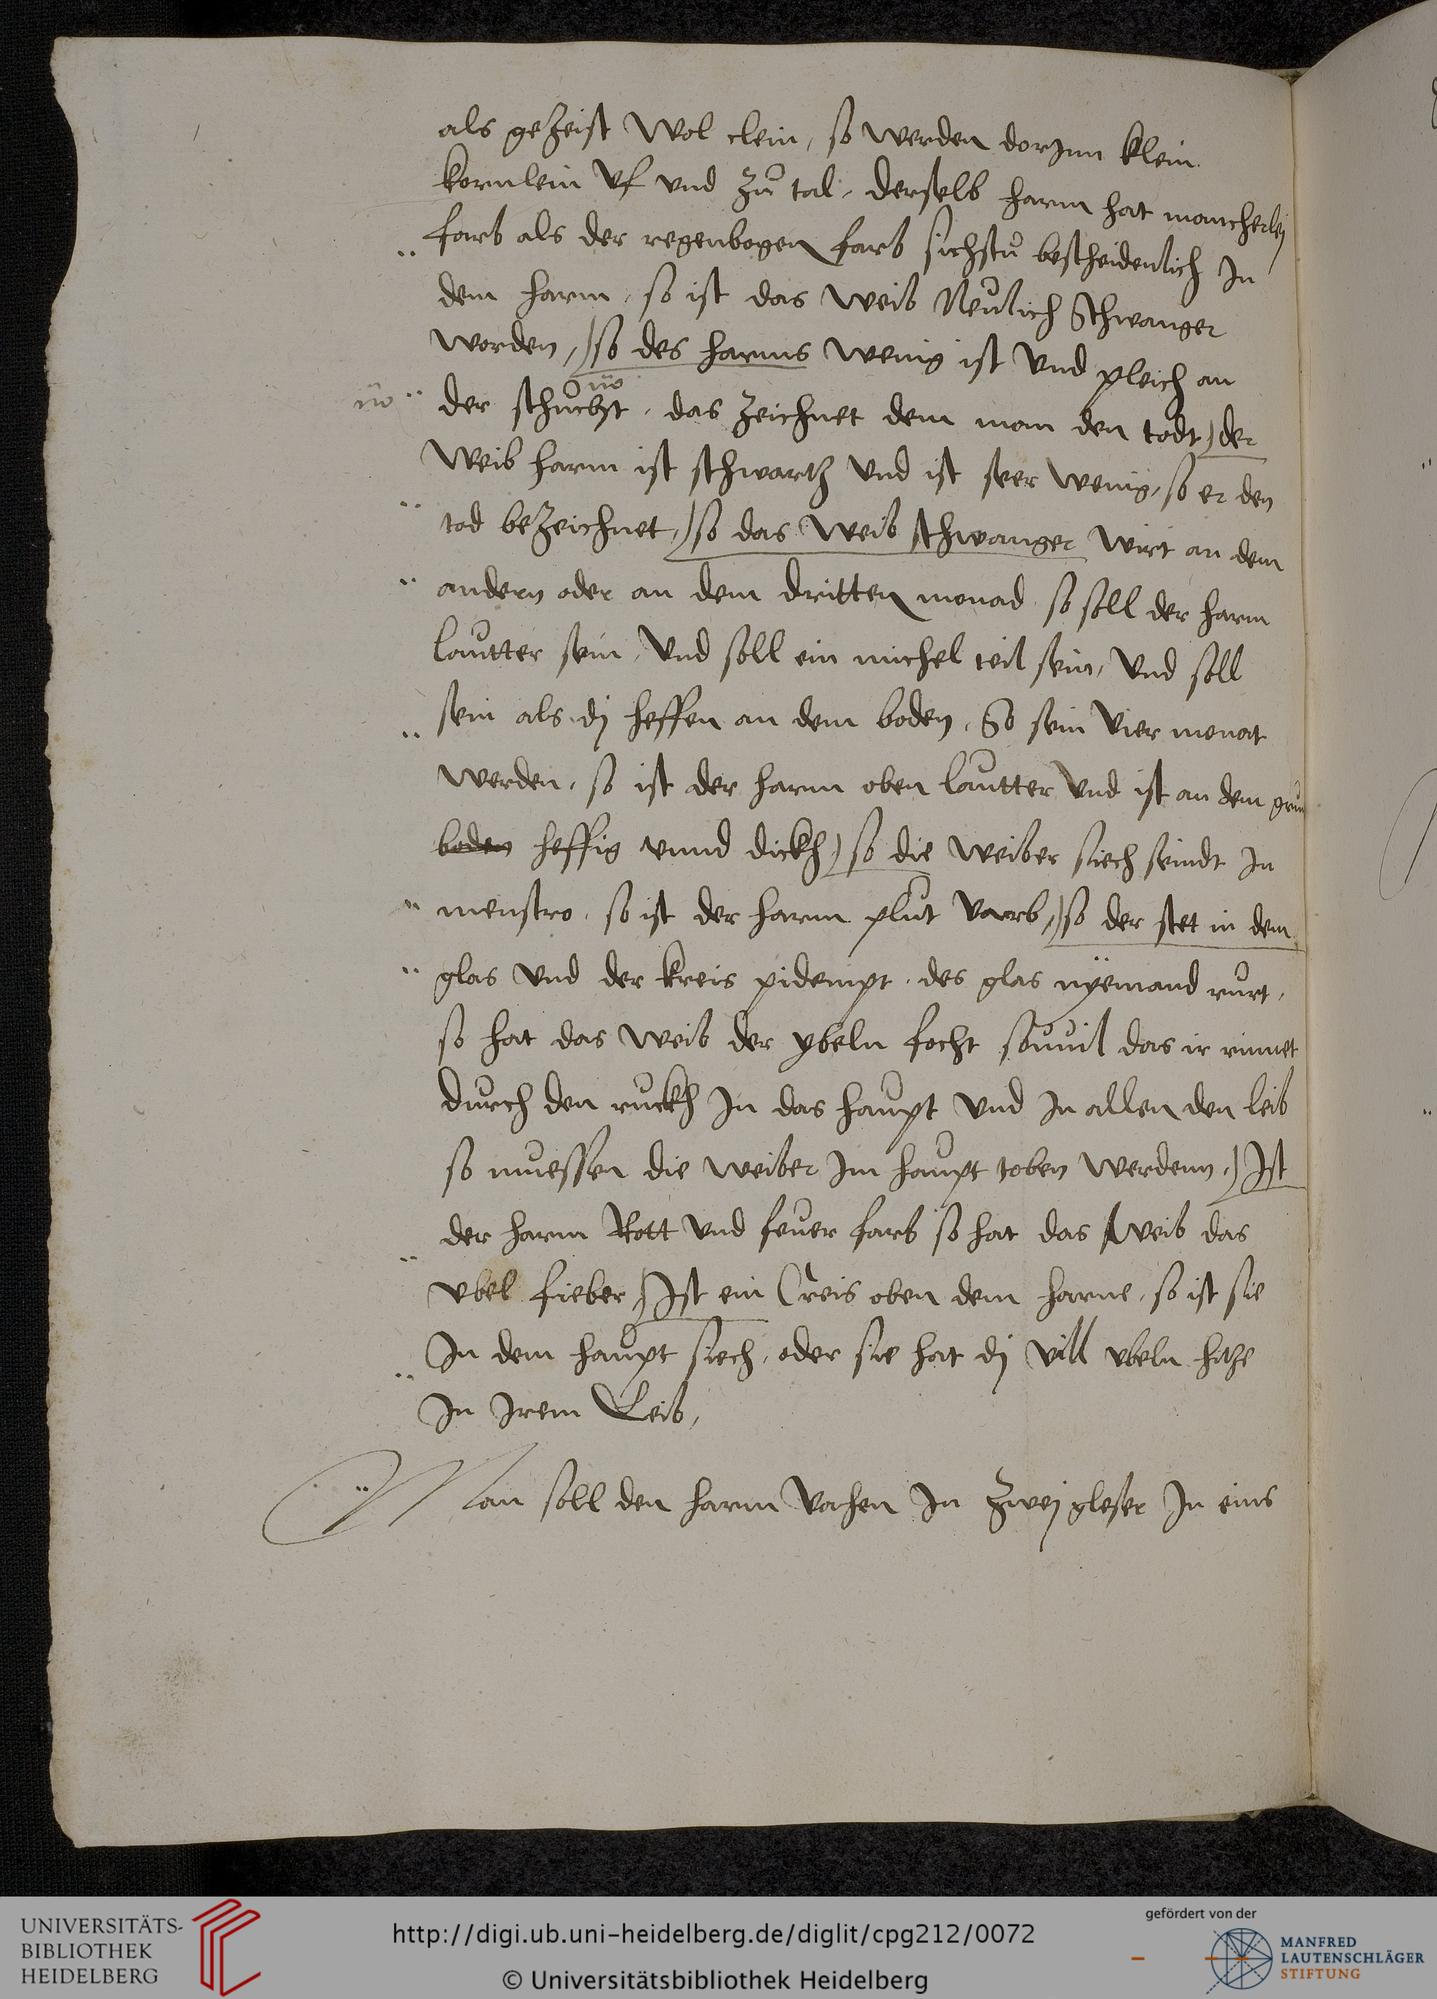 als gezeist wol clein, so werden dorJnn klein
kornlein vf vnd zů tal, derselb harm hat mancherley
farb als der regenbogen farb sichstu bescheidenlich Jn
dem harm, so ist das weib Neulich Schwanger
worden, so des harms wenig ist vnd pleich an
der, das zeichnet dem man den todt, der
weib harm ist schwartz vnd ist seer wenig, so er den
tod bezeichnet, so das weib schwanger wirt an dem
andern oder an dem dritten monad so soll der harm
lautter sein, vnd soll ein michel teil sein, vnd soll
sein als dj heffen an dem boden, So sein vier monat
werden, so ist der harm oben lautter vnd ist an dem grun
boden heffig vnnd dickh, so die weiber siech seindt Jn
menstro, so ist der harm plut varb, so der stet in dem
glas vnd der kreis pidempt, des glas nyemand rurt,
so hat das weib der ybeln focht souuil das ir rinnet
durch den ruckh Jn das haupt vnd Jn allen den leib
so muessen die weiber Jm haupt toben werdenn, Jst
der harm Rott vnd feuer farb so hat das weib das
vbel fieber, Jst ein Creis oben dem harne, so ist sie
Jn dem haupt siech, oder sie hat dj vill vbeln hitze
Jn Jrem Leib,
Man soll den harm vahen Jn zwej gleser Jn eins
UNIVERSITÄTS-
BIBLIOTHEK
HEIDELBERG
http://digi.ub.uni-heidelberg.de/diglit/cpg212/0072
© Universitätsbibliothek Heidelberg
gefördert von der
MANFRED
LAUTENSCHLÄGER
STIFTUNG